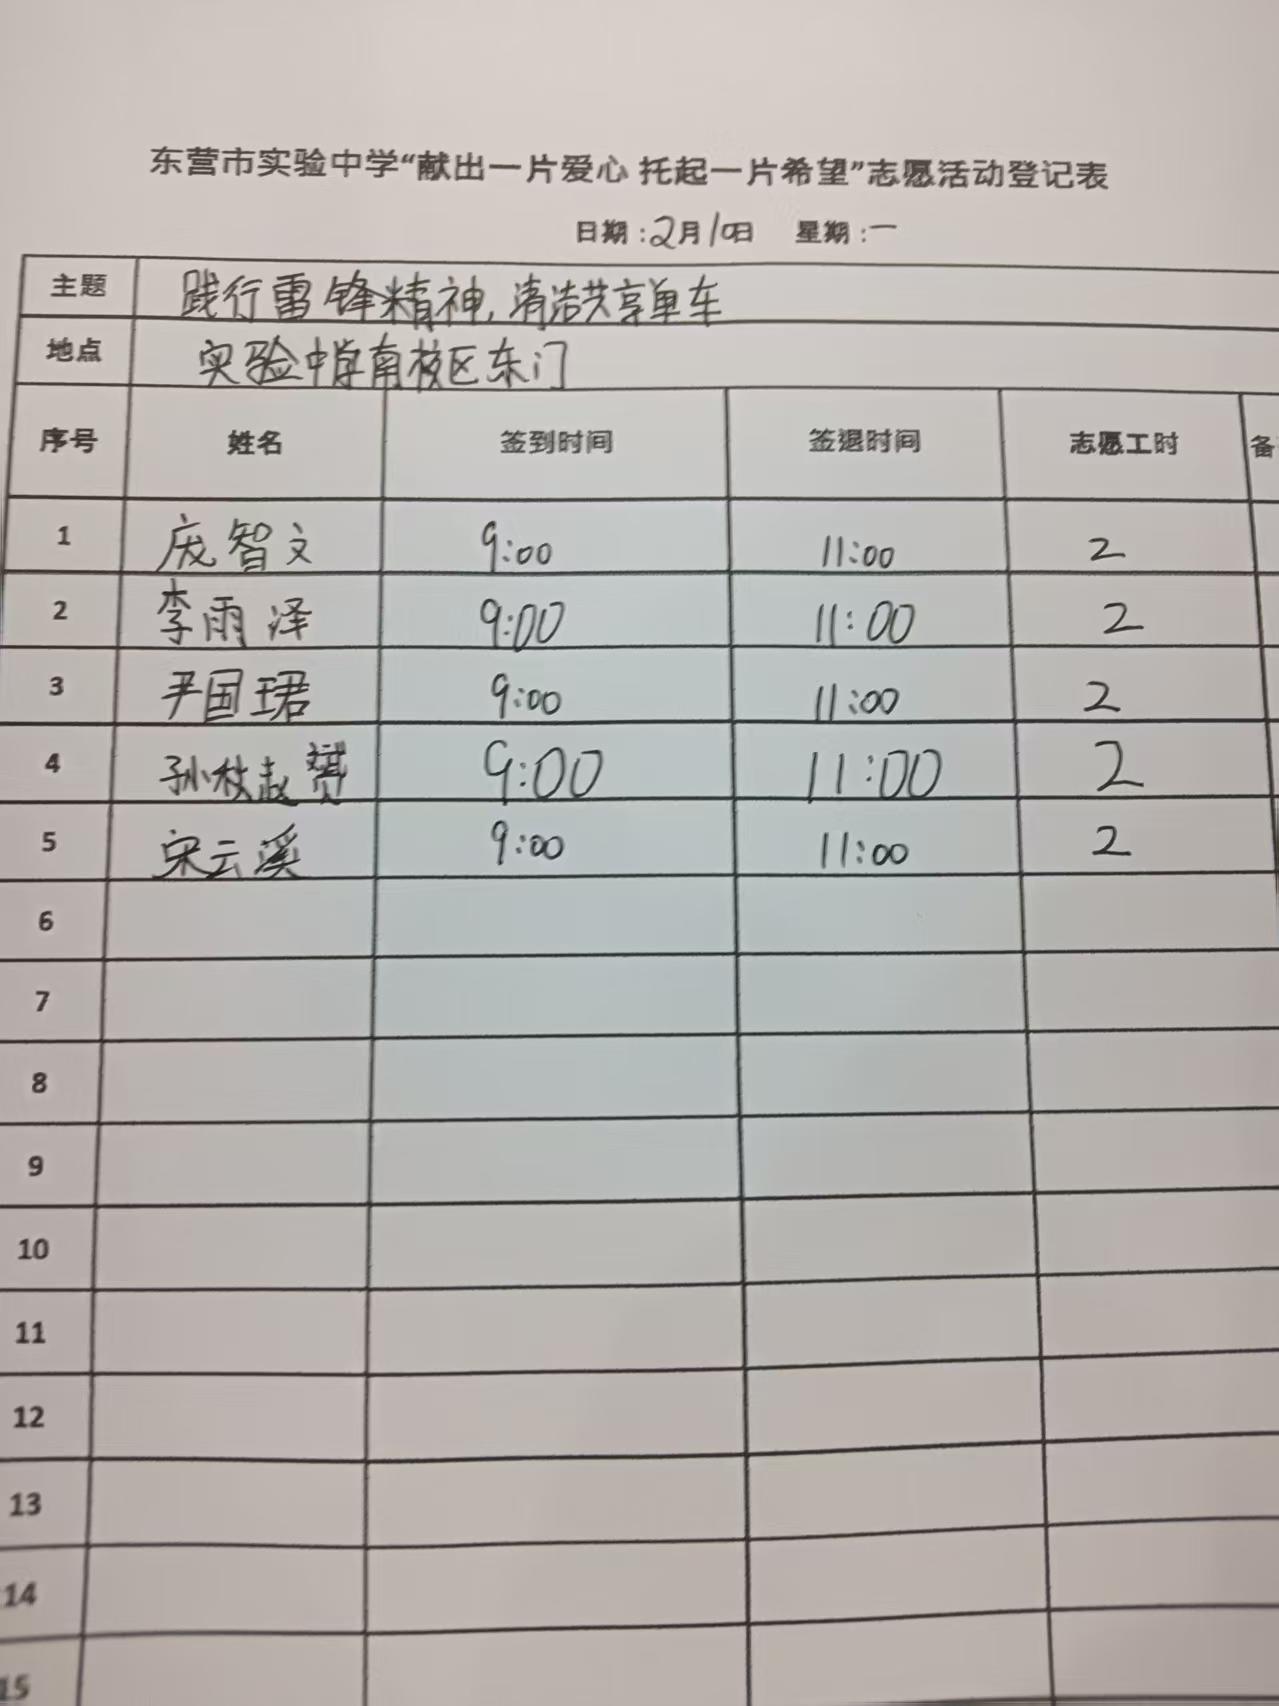 东营市实验中学“献出一片爱心 托起一片希望”志愿活动登记表
日期：2月10日 星期：一
主题 践行雷锋精神，清洁共享单车
地点 实验中学南校区东门
序号 姓名 签到时间 签退时间 志愿工时 备
1 庞智文 9:00 11:00 2
2 李雨泽 9:00 11:00 2
3 尹国珺 9:00 11:00 2
4 孙 赟 9:00 11:00 2
5 宋云溪 9:00 11:00 2
6
7
8
9
10
11
12
13
14
15